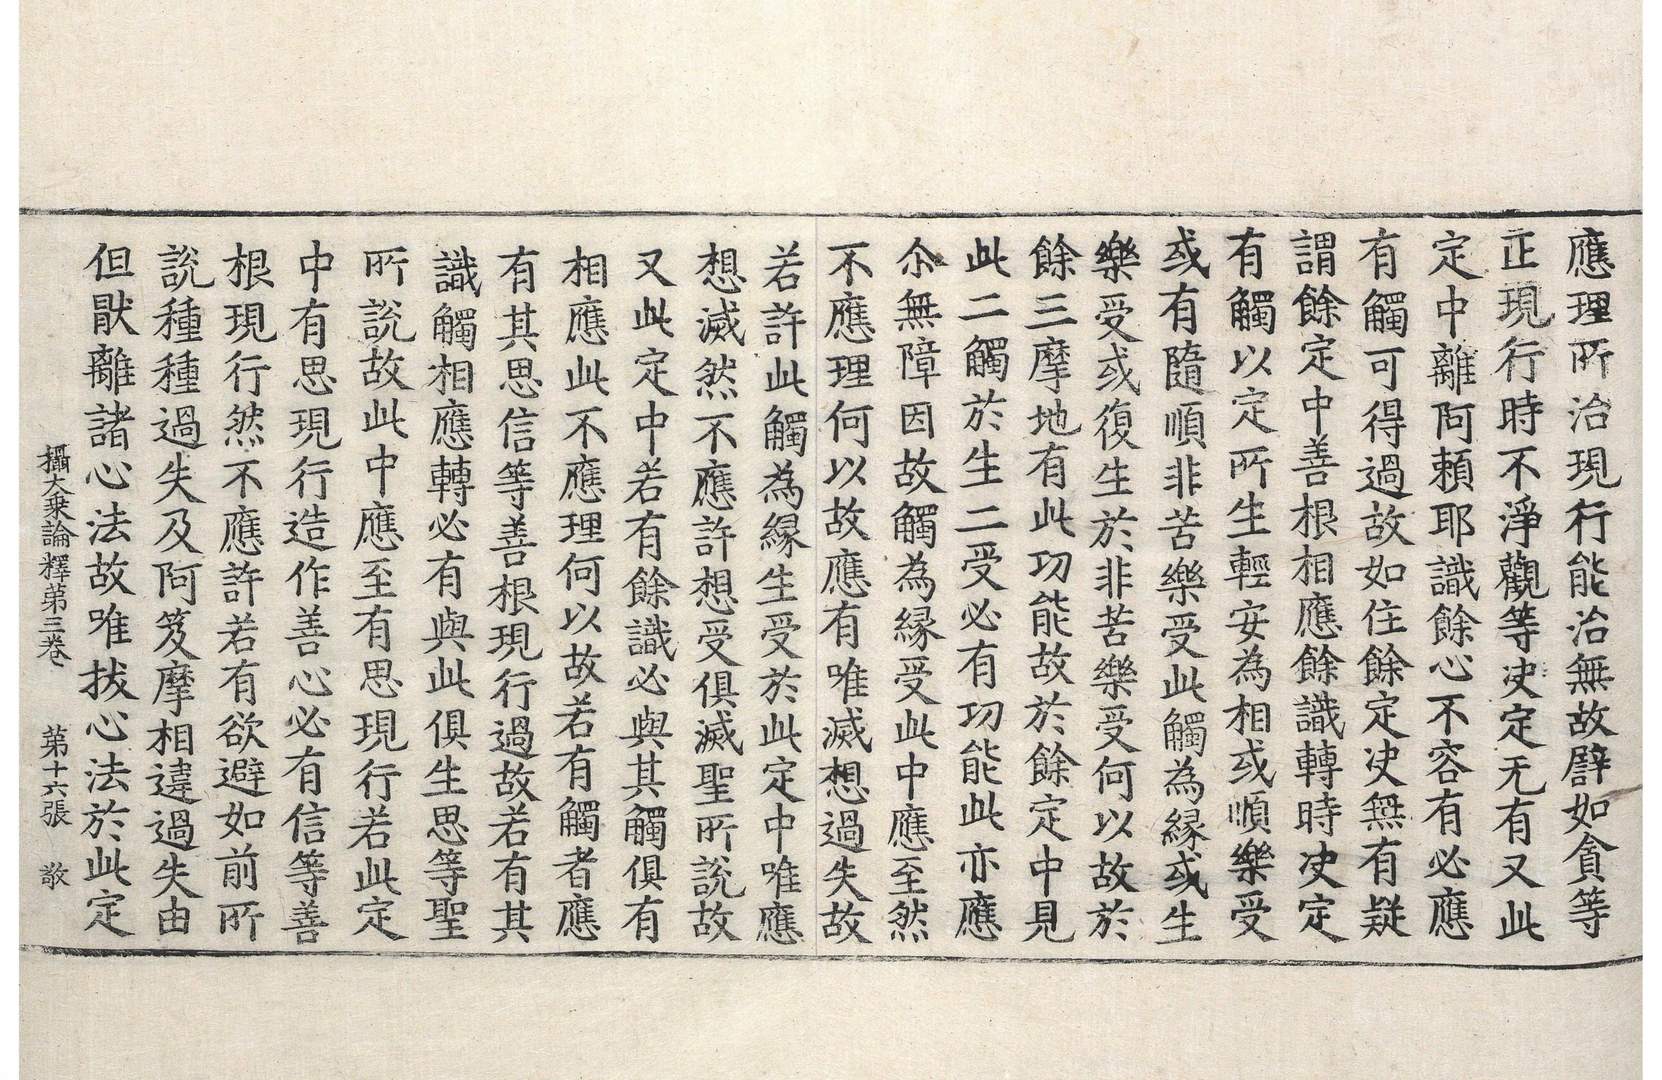 應理所治現行能治無故譬如貪等
正現行時不淨觀等决定无有又此
定中離阿賴耶識餘心不容有必應
有觸可得過故如住餘定决無有疑
謂餘定中善根相應餘識轉時决定
有觸以定所生輕安為相或順樂受
或有隨順非苦樂受此觸為緣或生
樂受或復生於非苦樂受何以故於
餘三摩地有此功能故於餘定中見
此二觸於生二受必有功能此亦應
尒無障因故觸為緣受此中應至然
不應理何以故應有唯滅想過失故
若許此觸為緣生受於此定中唯應
想滅然不應許想受俱滅聖所說故
又此定中若有餘識必與其觸俱有
相應此不應理何以故若有觸者應
有其思信等善根現行過故若有其
識觸相應轉必有與此俱生思等聖
所說故此中應至有思現行若此定
中有思現行造作善心必有信等善
根現行然不應許若有欲避如前所
說種種過失及阿笈摩相違過失由
但猒離諸心法故唯拔心法於此定
攝大乗論釋第三卷 第十六張 敬